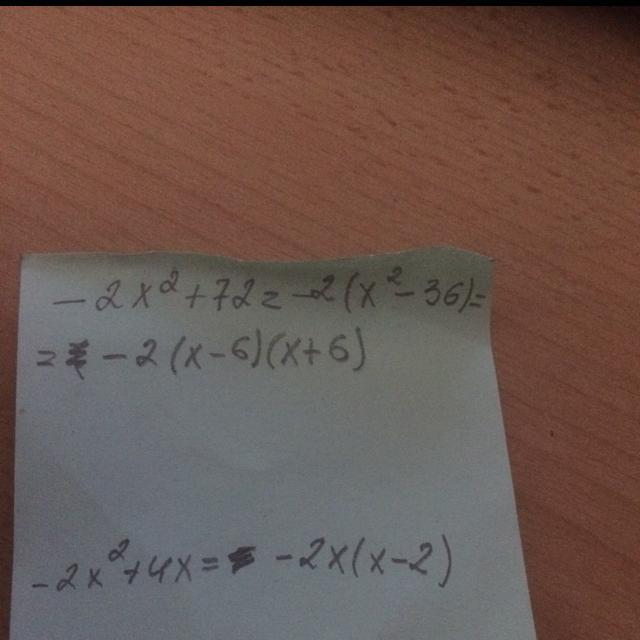 -2x²+72=-2(x²-36)=
= -2(x-6)(x+6)
-2x²+4x= -2x(x-2)